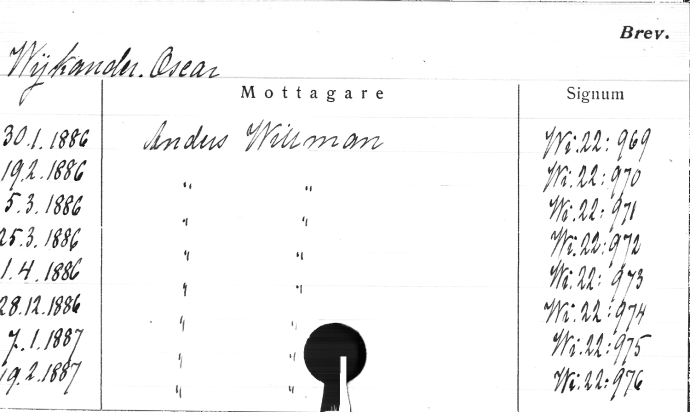 Brev.
Wijkander. Oscar
Mottagare Signum
30.1.1886 Anders Willman Wi.22:969
19.2.1886 " " Wi.22:970
5.3.1886 " " Wi.22:971
25.3.1886 " " Wi.22:972
1.4.1886 " " Wi.22:973
28.12.1886 " " Wi.22:974
7.1.1887 " " Wi.22:975
19.2.1887 " " Wi.22:976